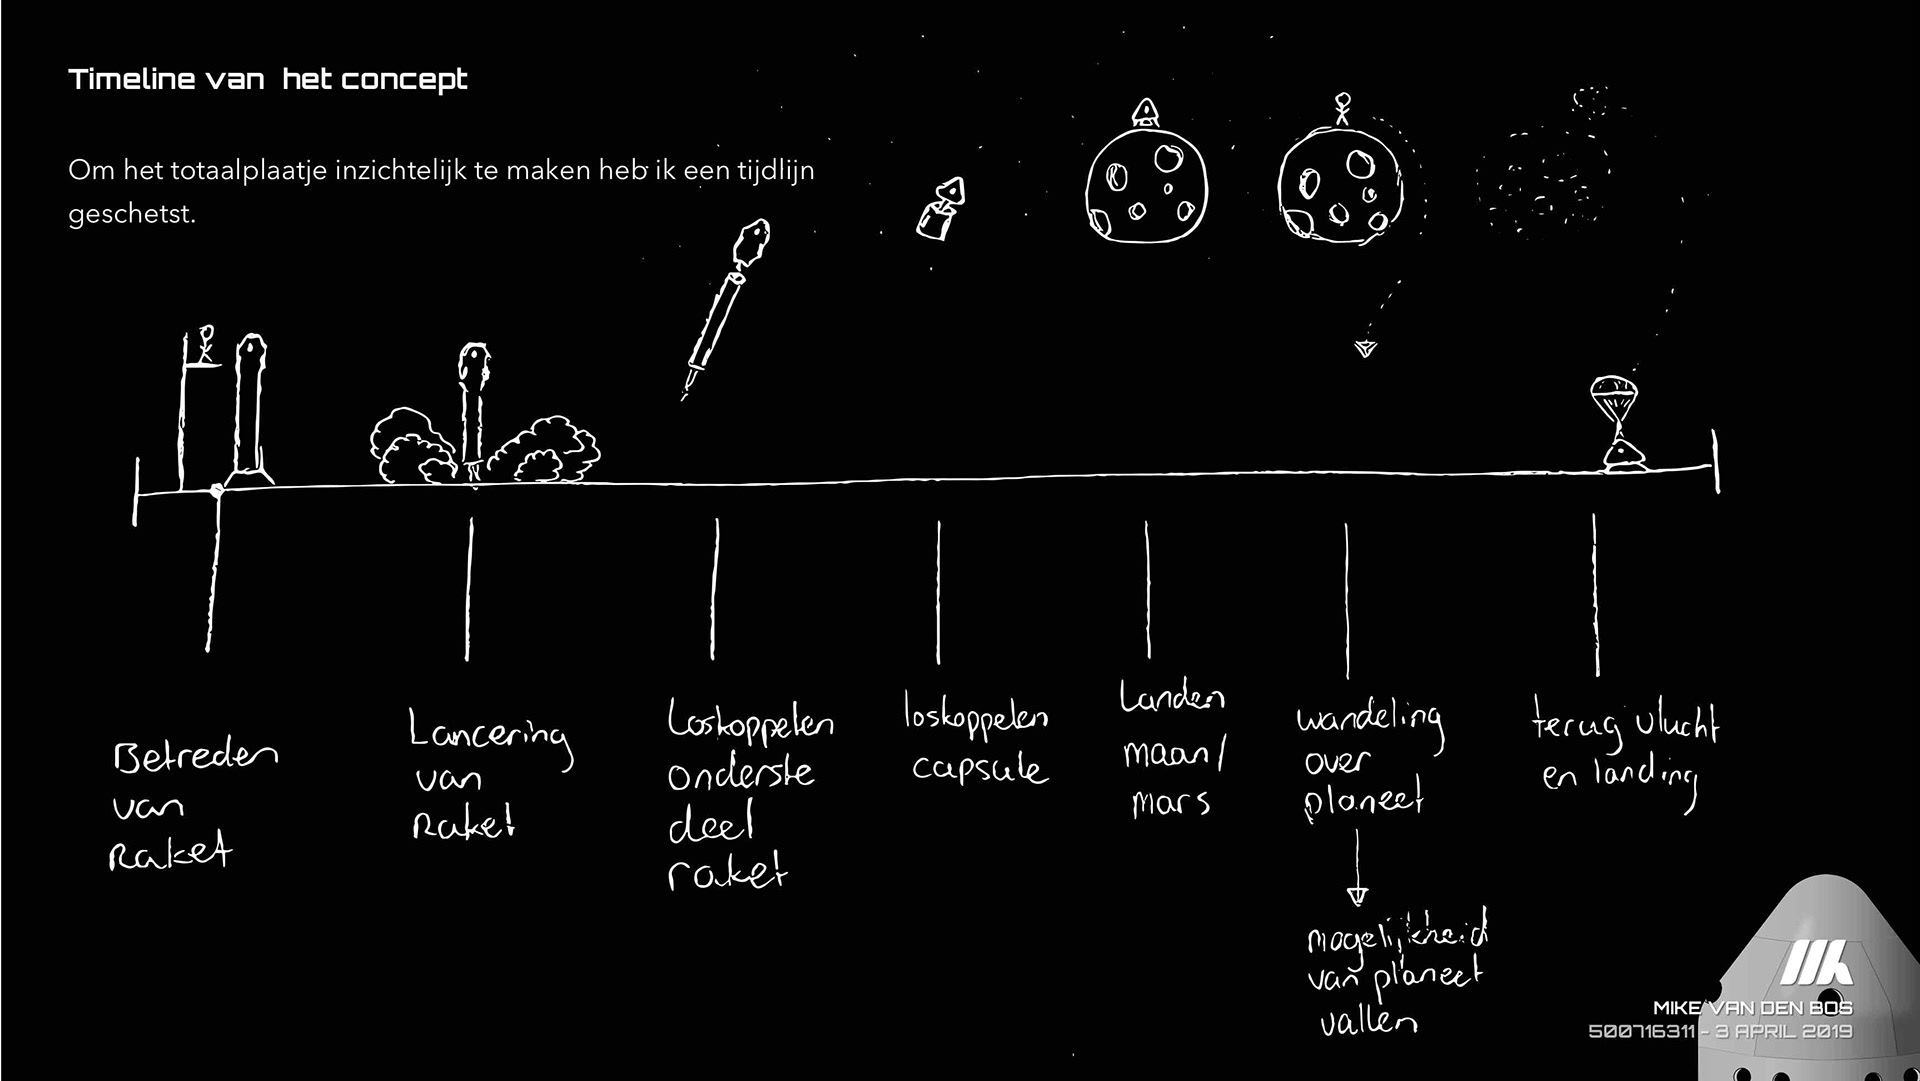 Timeline van het concept
Om het totaalplaatje inzichtelijk te maken heb ik een tijdlijn
geschetst.
Betreden
van
raket
Lancering
van
raket
Loskoppelen
onderste
deel
raket
loskoppelen
capsule
Landen
maan/
mars
wandeling
over
planeet
mogelijkheid
van planeet
vallen
terug vlucht
en landing
MIKE VAN DEN BOS
500716311 - 3 APRIL 2019